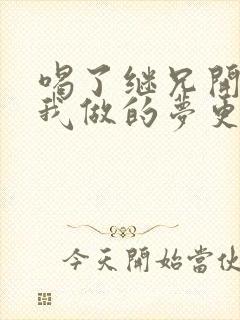 喝了继兄開
我做的夢更
今天開始當伙